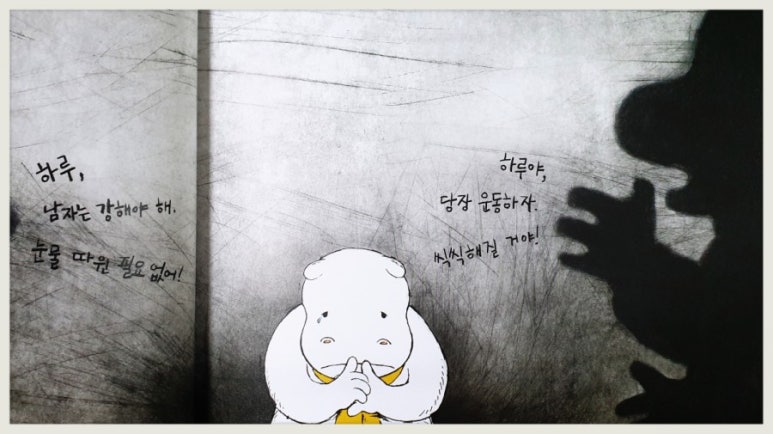 하루,
남자는 강해야 해.
눈물 따윈 필요 없어!
하루야,
당장 운동하자.
씩씩해질 거야!